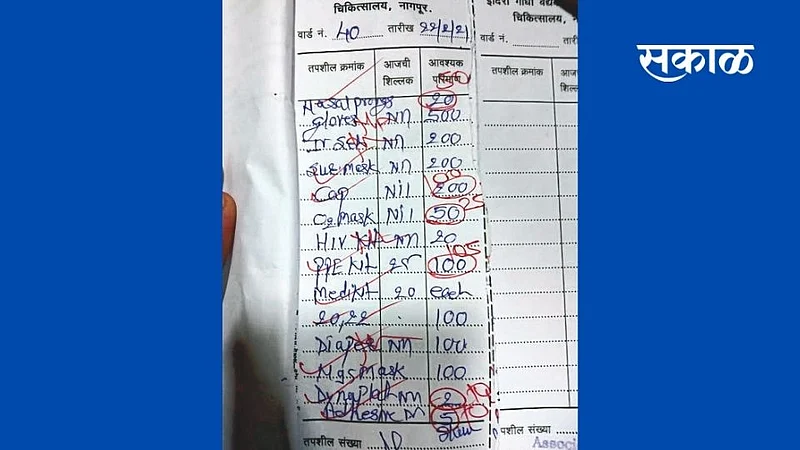 चिकित्सालय, नागपूर.
वार्ड नं. 40 तारीख २२/२/२१
तपशील क्रमांक आजची शिल्लक आवश्यक परिमाण
50
Nasal prongs 20
gloves Nil 500
Nil 200
mask Nil 200
100
Cap Nil 200
O2 mask Nil 50 25
HIV Kit Nil 20
105
PPE Kit 25 100
Medikit 20 each
20, 22 . 100
Diaper Nil 100
N95 mask 100
Dynaplast Nil 2 10
Adhesive 5 10
तपशील संख्या 10
इंदिरा गांधी वैद्य
चिकित्सालय,
वार्ड नं. तारीख
तपशील क्रमांक
पशील संख्या
Associ
सकाळ